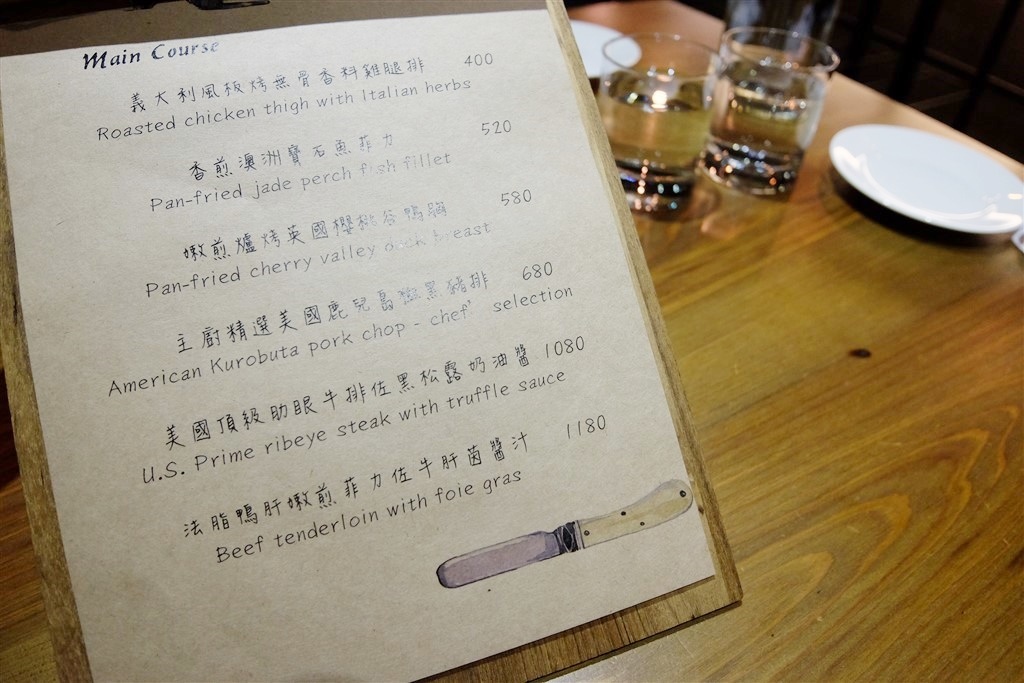 Main Course
義大利風板烤無骨香料雞腿排 400
Roasted chicken thigh with Italian herbs
香煎澳洲寶石魚菲力 520
Pan-fried jade perch fish fillet
嫩煎爐烤英國櫻桃谷鴨胸 580
Pan-fried cherry valley duck breast
主廚精選美國鹿兒島黑豬排 680
American Kurobuta pork chop - chef' selection
美國頂級肋眼牛排佐黑松露奶油醬 1080
U.S. Prime ribeye steak with truffle sauce
法脂鴨肝嫩煎菲力佐牛肝菌醬汁 1180
Beef tenderloin with foie gras